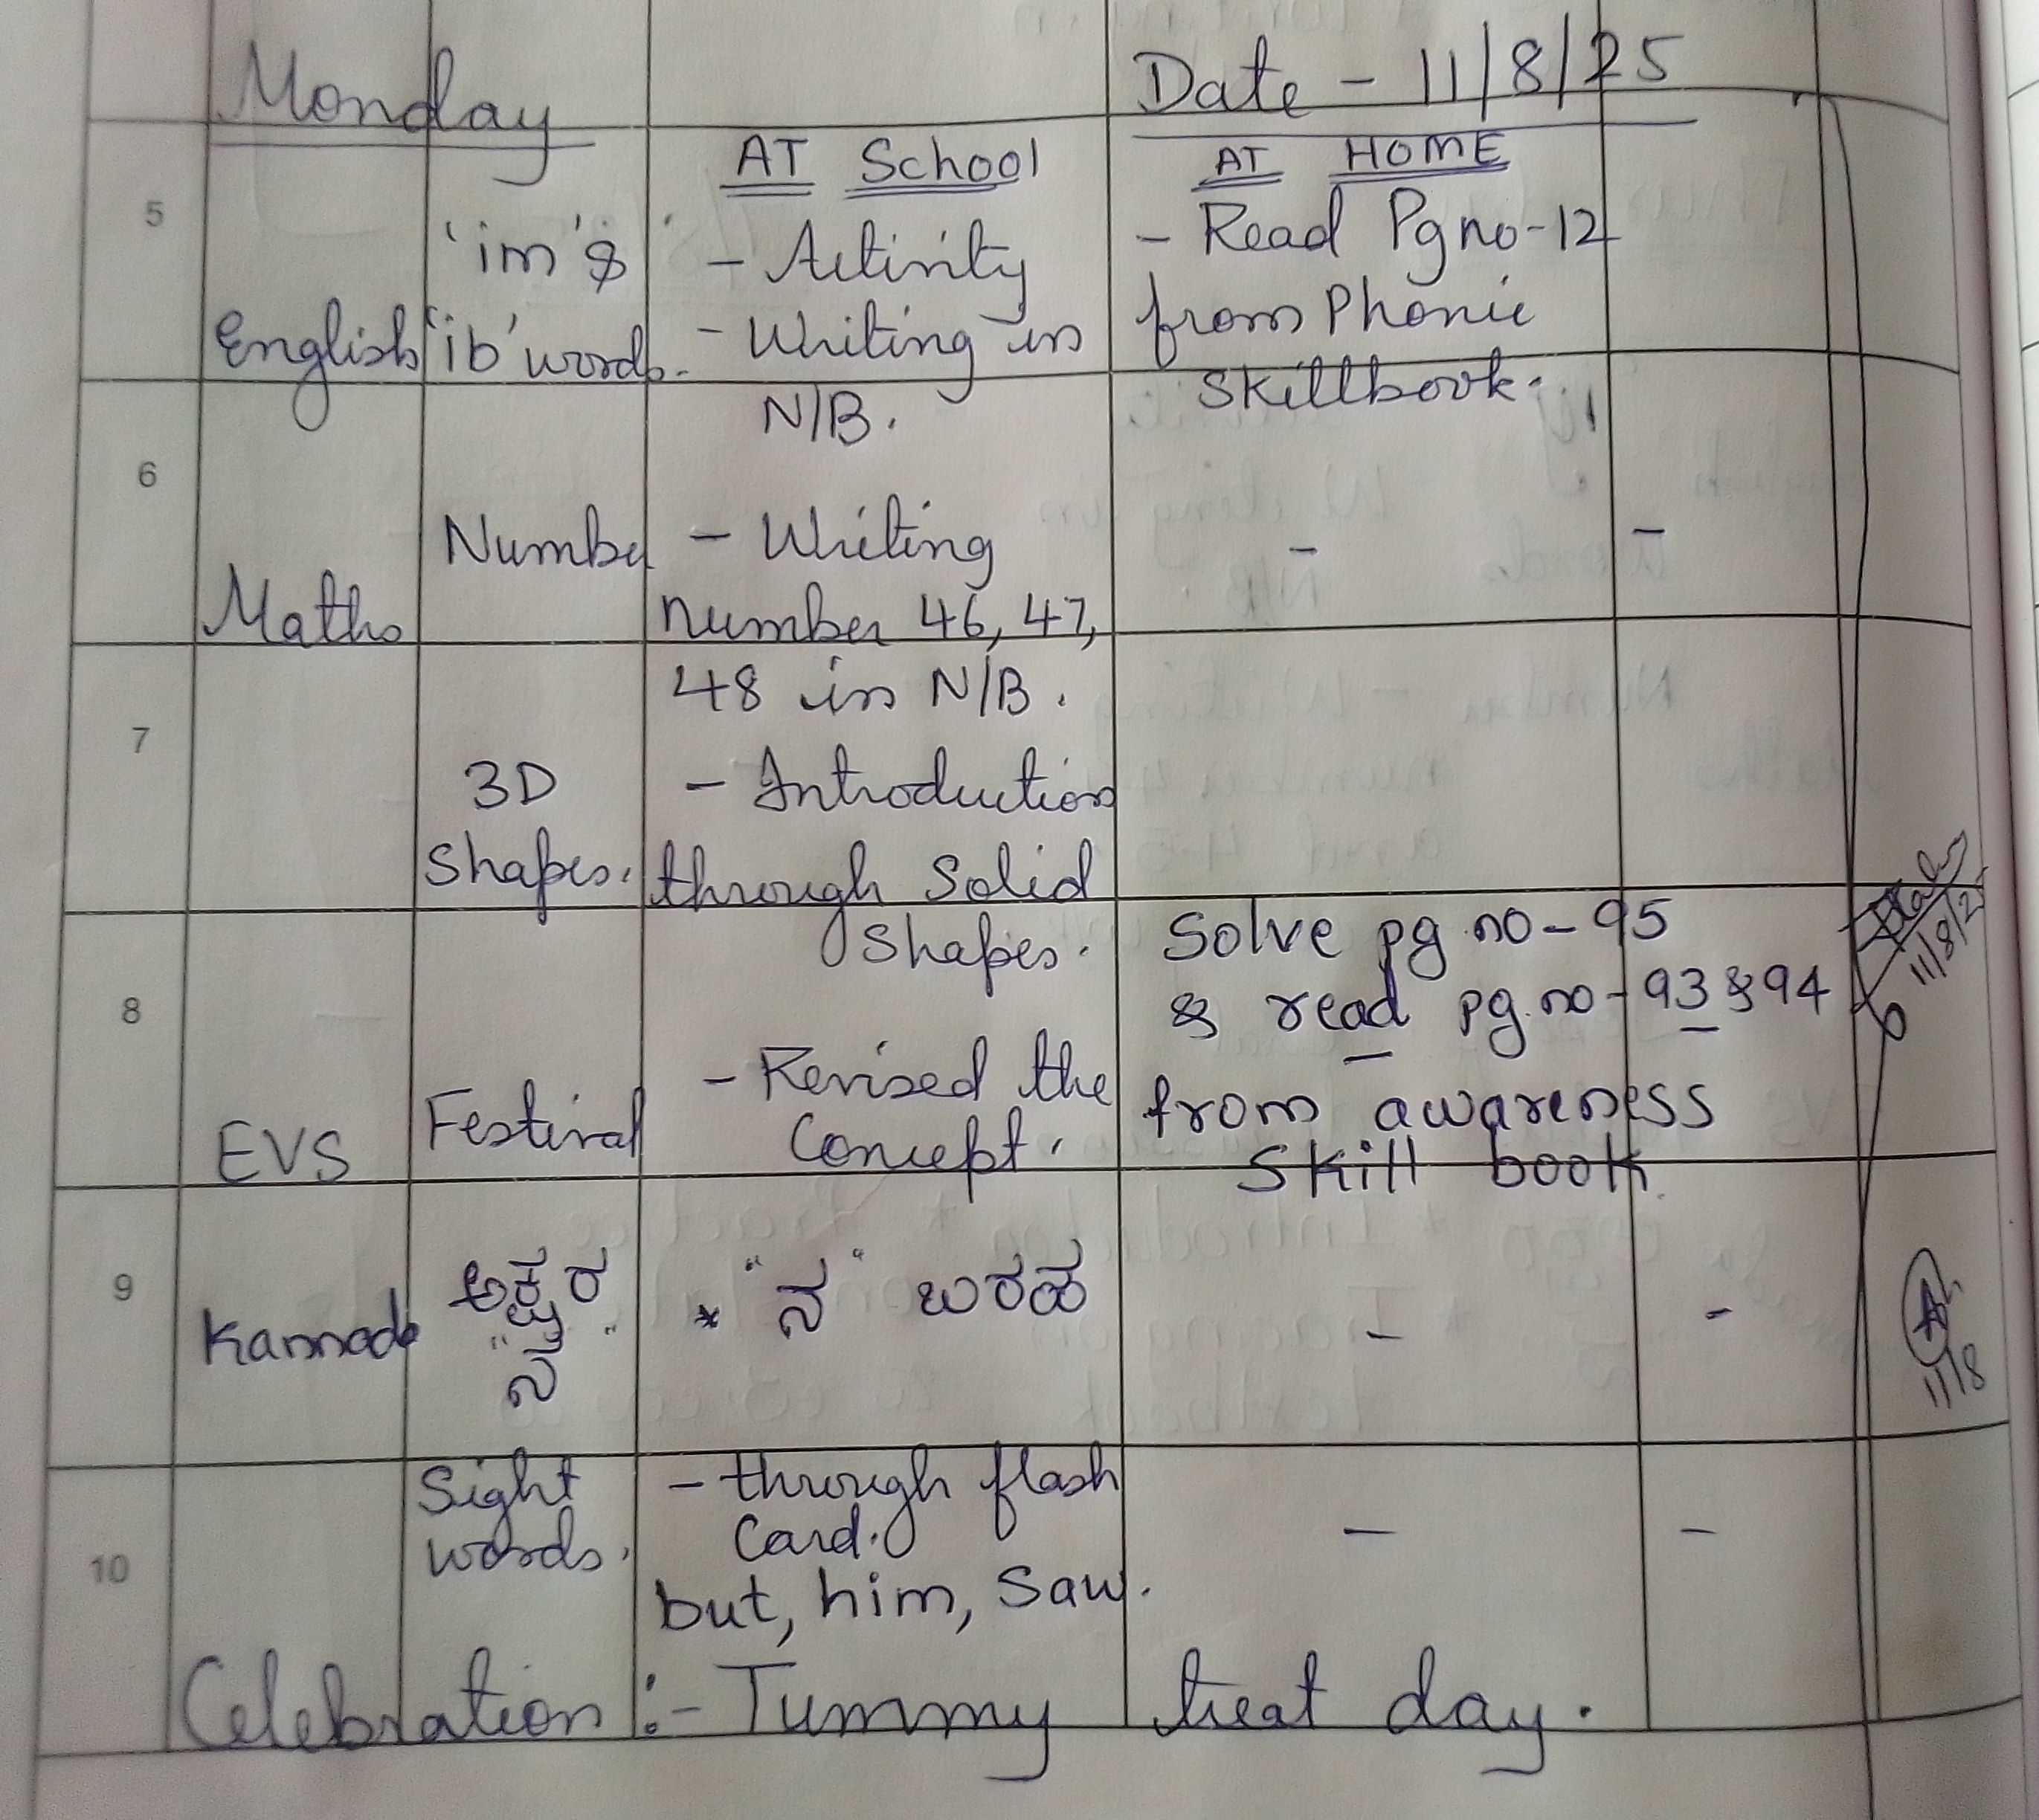 Monday
Date - 11/8/25
AT School
AT HOME
5
'im' &
- Activity
- Read Pg no-12
English
'ib' words.
- Writing in
from Phonic
N/B.
Skillbook.
6
Number
- Writing
-
-
Maths
number 46, 47,
48 in N/B.
7
3D
- Introduction
Shapes.
through Solid
Shapes.
Solve pg.no-95
& read pg.no-93 & 94
8
- Revised the
from awareness
EVS
Festival
Concept.
Skill book.
9
ಅಕ್ಷರ
* "ನ" ಬರಹ
-
-
Kannada
"ನ"
11/8/25
11/8
Sight
- through flash
words.
Card.
-
-
10
but, him, saw.
Celebration :- Tummy treat day.